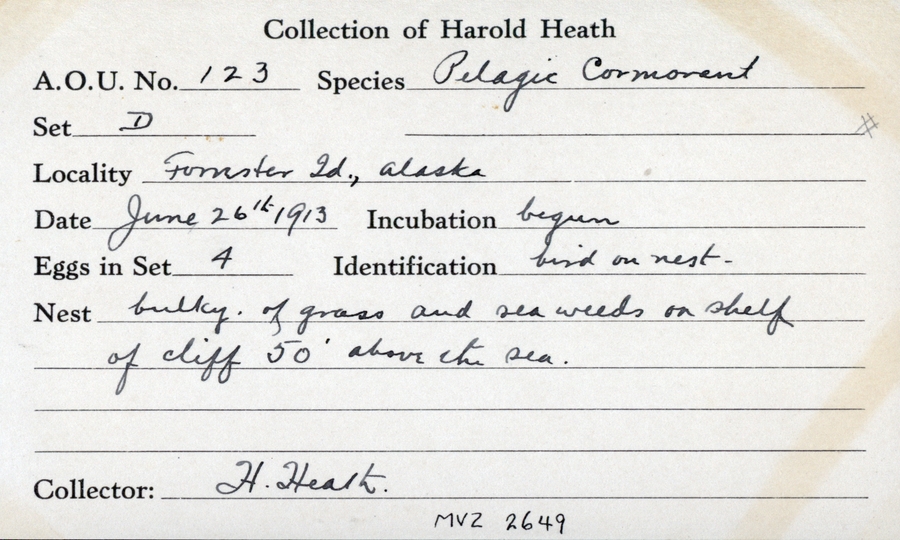 Collection of Harold Heath
A.O.U. No. 123 Species Pelagic Cormorant
Set D #
Locality Forrester Id., Alaska
Date June 26th 1913 Incubation begun
Eggs in Set 4 Identification bird on nest-
Nest bulky. of grass and sea weeds on shelf
of cliff 50' above the sea.
Collector: H. Heath.
MVZ 2649